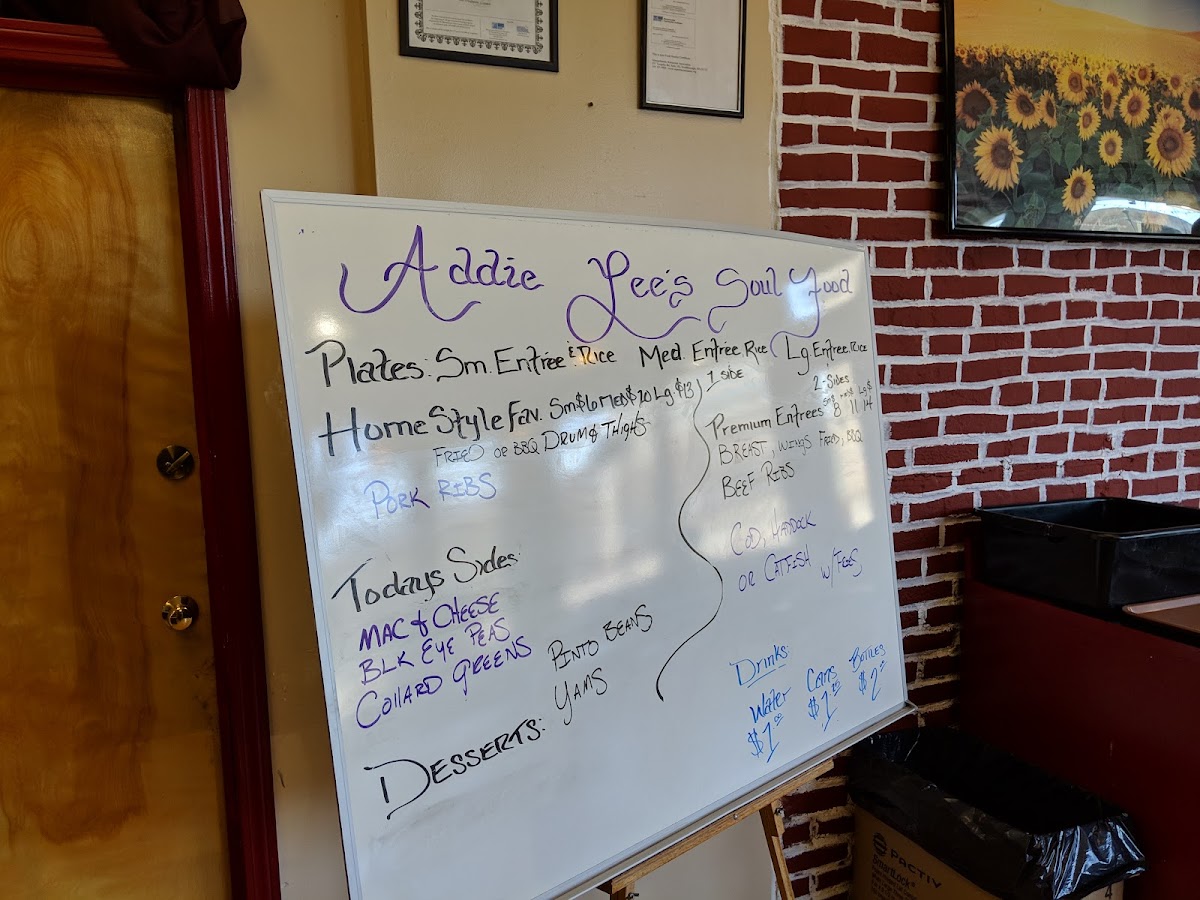 Addie Lee's Soul Food
Plates: Sm. Entree & Rice Med. Entree. Rice Lg. Entree. Rice
1 side
2-Sides
Home Style Fav. Sm $6 Med $10 Lg. $13
Fried or BBQ Drum & Thighs
Pork Ribs
Premium Entrees 8 11 14
Breast, Wings Fried, BBQ
Beef Ribs
Cod, Haddock
or Catfish
Todays Sides:
Mac & Cheese
Blk Eye Peas
Collard Greens
Pinto Beans
Yams
Desserts:
Drinks:
Water Cans Bottles
$1.00 $1.00 $2.00
PACTIV
SmartLock
4